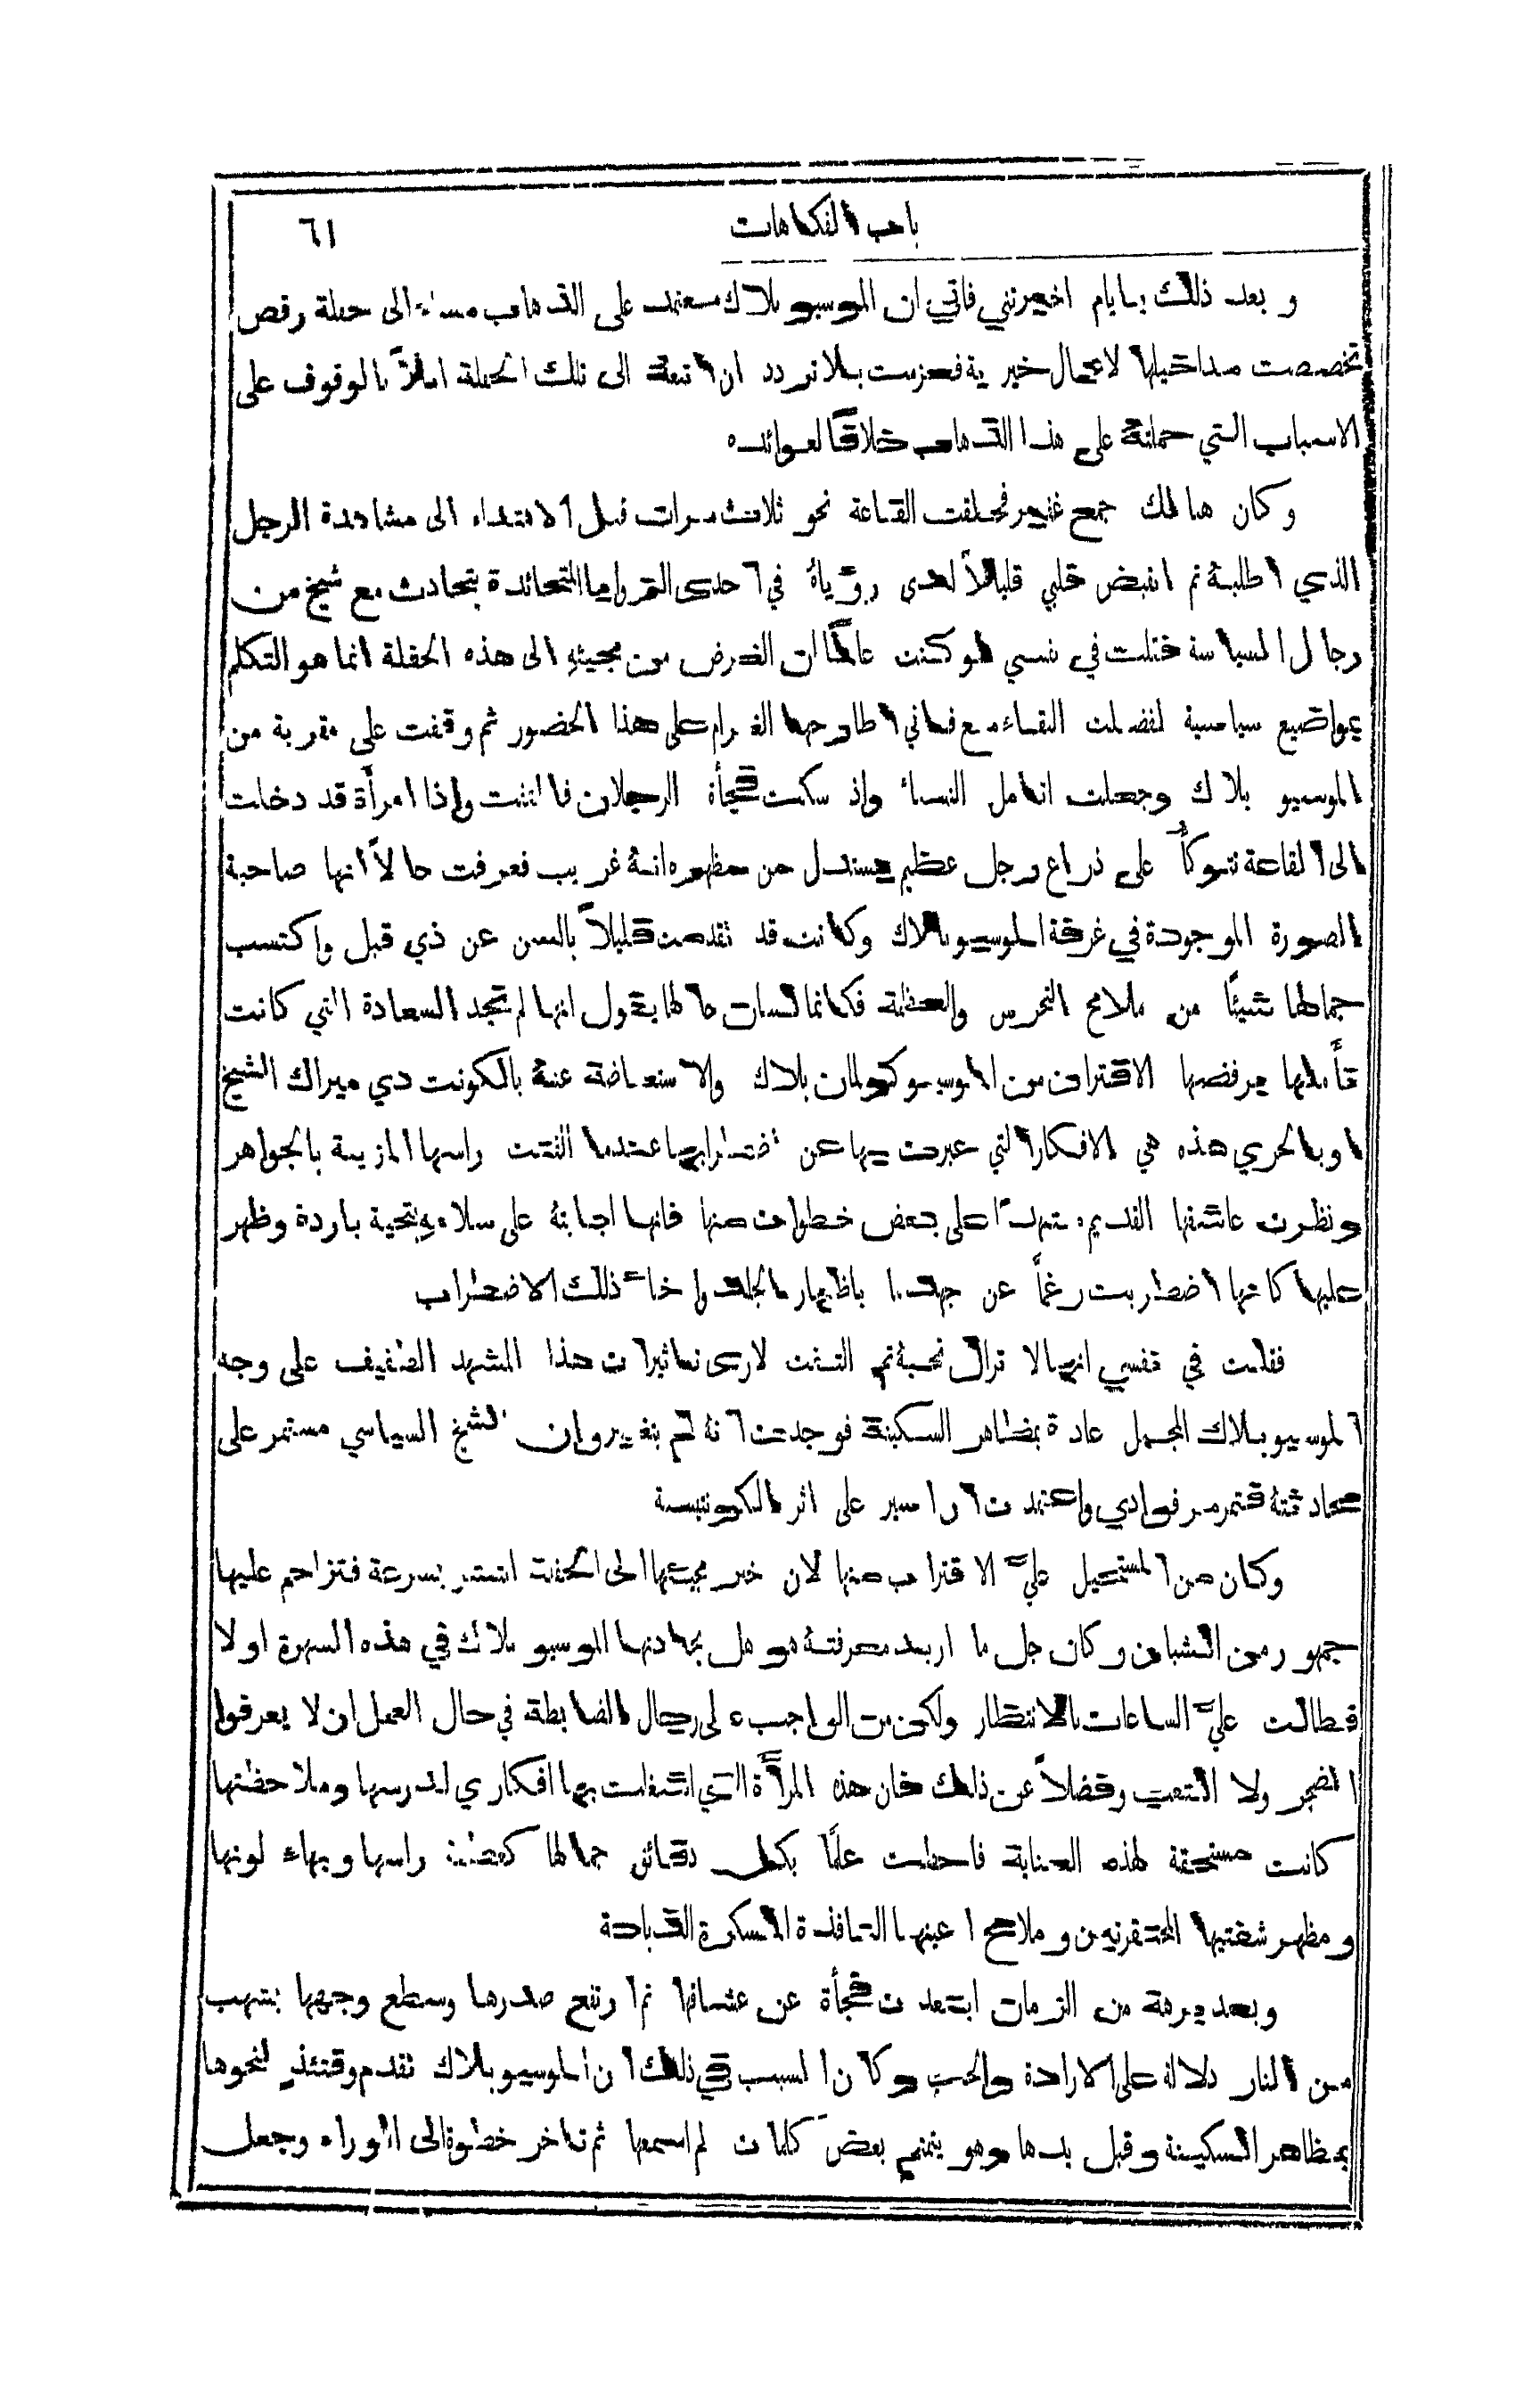 باب الفكاهات
٦١
وبعد ذلك بايام اخبرتني فاتي ان الموسيو بلاك معتمد على الذهاب مساء الى حفلة رقص
تخصصت مداخيلها لاعمال خيرية فعزمت بلا تردد ان اتبعه الى تلك الحفلة املاً بالوقوف على
الاسباب التي حملته على هذا الذهاب خلافًا لعوائده
وكان هنالك جمع غفير فحلقت القاعة نحو ثلاث مرات قبل الاهتداء الى مشاهدة الرجل
الذي اطلبه ثم انقبض قلبي قليلاً لدى رؤياه في احدى الزوايا المتحائدة يتحادث مع شيخ من
رجال السياسة فقلت في نفسي لو كنت عالمًا ان الغرض من مجيئهِ الى هذه الحفلة انما هو التكلم
بمواضيع سياسية لفضلت البقاء مع فاني اطارحها الغرام على هذا الحضور ثم وقفت على مقربة من
الموسيو بلاك وجعلت اتامل النساء واذ سكت فجأة الرجلان فالتفت واذا امرأة قد دخلت
الى القاعة تتوكأ على ذراع رجل عظيم يستدل من مظهره انهُ غريب فعرفت حالاً انها صاحبة
الصورة الموجودة في غرفة الموسيو بلاك وكانت قد تقدمت قليلاً بالسن عن ذي قبل واكتسب
جمالها شيئًا من ملامح التحرس والعظمة فكانما لسان حالها يقول انها لم تجد السعادة التي كانت
تأملها برفضها الاقتران من الموسيو كولمان بلاك والاستعاضة عنهُ بالكونت دي ميراك الشيخ
او بالحري هذه هي الافكار التي عبرت بها عن اضطرابها عندما التفتت راسها المزينة بالجواهر
ونظرت عاشقها القديم متهدًا على بعض خطوات منها فانها اجابتهُ على سلامهِ بتحية باردة وظهر
عليها كانها اضطربت رغمًا عن جهدها باظهار الجلد واخفاء ذلك الاضطراب
فقلت في نفسي انها لا تزال تحبهُ ثم التفت لارى تاثيرات هذا المشهد الطفيف على وجه
الموسيو بلاك المجمل عادة بمظاهر السكينة فوجدت انهُ لم يتغير وان الشيخ السياسي مستمر على
محادثته فتمرمر فوادي واعتمدت ان اسير على اثر الكونتيسة
وكان من المستحيل عليَّ الاقتراب منها لان خبر مجيئها الى الحفلة انتشر بسرعة فتزاحم عليها
جمهور من الشبان وكان جل ما اريد معرفتهُ هو هل يحادثها الموسيو بلاك في هذه السهرة او لا
فطالت عليَّ الساعات بالانتظار ولكن من الواجب على رجال الضابطة في حال العمل ان لا يعرفوا
الضجر ولا التعب وفضلاً عن ذلك فان هذه المرأة التي انشغلت بها افكاري لدرسها وملاحظتها
كانت مستحقة لهذه العناية فاحطت علمًا بكل دقائق جمالها كعظمة راسها وبهاء لونها
ومظهر شفتيها المحتقرتين وملامح اعينها النافذة المسكرة القتالة
وبعد برهة من الزمان ابتعدت فجأة عن عشاقها ثم ارتفع صدرها وسطع وجهها بلهب
من النار دلالة على الارادة والحب وكان السبب في ذلك ان الموسيو بلاك تقدم وقتئذٍ لنحوها
بمظاهر السكينة وقبل يدها وهو يتمتم بعض كلمات لم اسمعها ثم تاخر خطوة الى الوراء وجعل